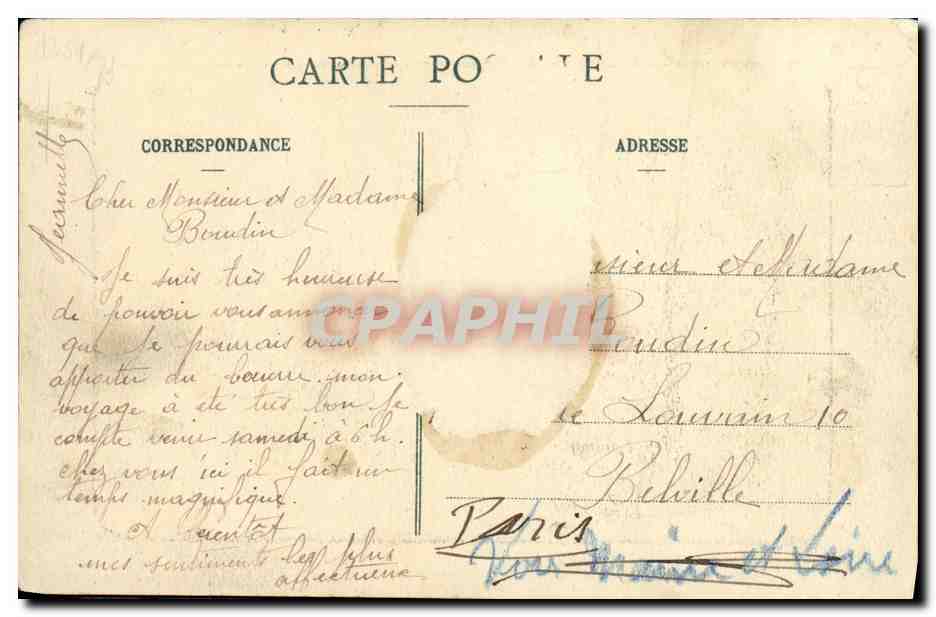 CARTE PO E
CORRESPONDANCE
Jeannette
Cher Monsieur et Madame
Boudin
Je suis très heureuse
de pouvoir vous annoncer
que je pourrais vous
apporter du beurre. mon
voyage à été très bon je
compte venir samedi à 6 h.
chez vous ici il fait un
temps magnifique.
A bientôt
mes sentiments les plus
affectueux
ADRESSE
sieur et Madame
oudin
Louvain 10
Belville
Paris
Voir Maine et Loire
CPAPHIL